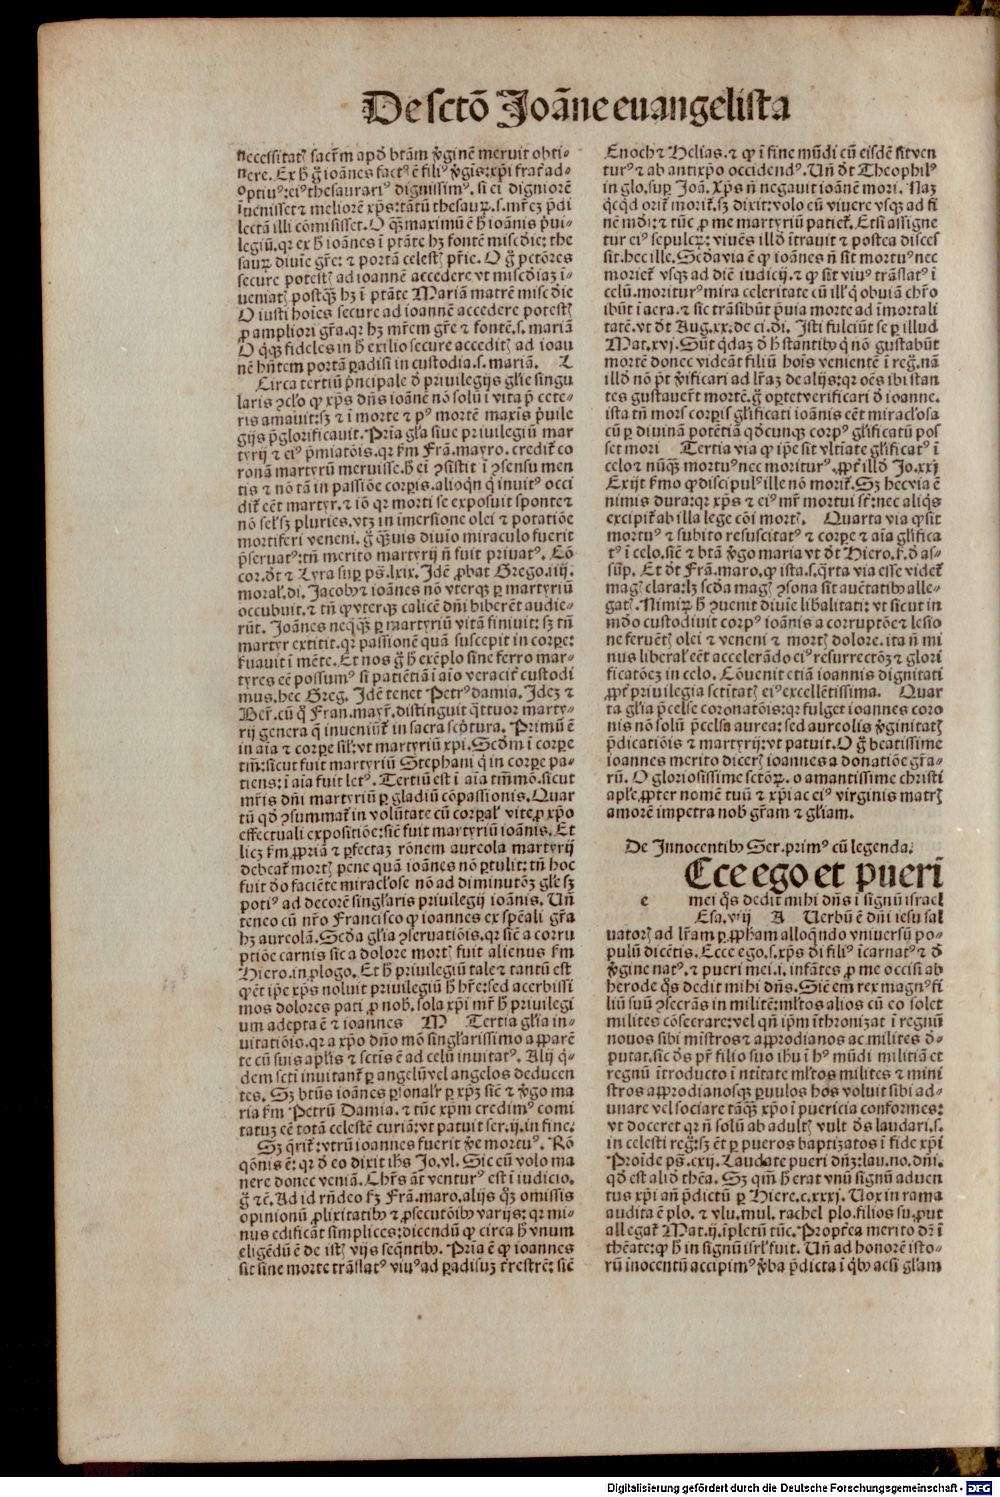 De sctō Joāne euangelista
necessitatꝭ sacrm̄ apd̄ btām ꝟginē meruit obti⸗
nere. Ex h̄ g̊ ioānes factꝰ ē filiꝰ ꝟgis: xp̄i frat̉ ad⸗
optiuꝰ: eiꝰ thesaurariꝰ dignissimꝰ. si ei digniorē
īuenisset ⁊ meliorē xp̄s: tātū thesauꝝ .s. mr̄eꝫ p̄di
lectā illi cōmisisset. O qꝫ̄ maximū ē h̄ ioānis p̄ui⸗
legiū. qr ex h̄ ioānes i ptāte hꝫ fontē misc̄die: the
sauꝝ diuie gr̄e: ⁊ portā celestꝭ pr̄ie. O g̊ pctōres
secure potestꝭ ad ioannē accedere vt misc̄diaꝫ ī⸗
ueniatꝭ postqꝫ̄ hꝫ i ptāte Mariā matrē misc̄die
O iusti hoīes secure ad ioannē accedere potestꝭ
ꝓ ampliori gr̄a. qr hꝫ mr̄em gr̄e ⁊ fontē .s. mariā
O qꝫ̄qꝫ fideles in h̄ exilio secure acceditꝭ ad ioan
nē hn̄tem portā ꝑadisi in custodia .s. mariā. L
Circa tertiū p̄ncipale d̄ priuilegijs gl̄ie singu
laris ꝯclo ꝙ xp̄s dn̄s ioānē nō solū i vita p̄ cete⸗
ris amauit: sꝫ ⁊ i morte ⁊ pꝰ mortē maxīs p̄uile
gijs p̄glorificauit. Prīa gl̄a siue priuilegiū mar
tyrij ⁊ eiꝰ p̄miatōis. qr km̄ Frā. mayro. credit̉ co
ronam martyrū meruisse. h̄ ei ꝯsistit ī ꝯsensu men
tis ⁊ nō tā in passiōe corꝑis. alioqn̄ q̄ inuitꝰ occi
dit̉ eēt martyr. ⁊ iō qr morti se exposuit sponte ⁊
nō sel̓ sꝫ pluries. vtꝫ in imersione olei ⁊ potatiōe
mortiferi veneni. g̊ qꝫ̄uis diuio miraculo fuerit
p̄seruatꝰ: tn̄ merito martyrij n̄ fuit priuatꝰ. Eō
cor. d̄t ⁊ Lyra suꝑ ps̄. lxix. Jdē ꝓbat Grego. iiij.
moral̓. di. Jacobꝰ ⁊ ioānes nō vterqꝫ ꝑ martyriū
occubuit. ⁊ tn̄ ꝙ vterqꝫ calicē dn̄i biberēt audie⸗
rūt. Joānes neqꝫ̄qꝫ ꝑ martyriū vitā finiuit: sꝫ tn̄
martyr extitit. qr passionē quā suscepit in corꝑe:
ẜuauit i mēte. Et nos g̊ h̄ exēplo sine ferro mar⸗
tyres eē possumꝰ si patiētiā i aīo veracit̉ custodi
mus. hec Greg. Jdē tenet Petrꝰ damia. Jdeꝫ ⁊
Ber̄. cū q̊ Fran. mayr̄. distinguit q̄ttuor marty⸗
rij genera q̄ inueniūt̉ in sacra scptura. Primū ē
in aīa ⁊ corꝑe sil̓: vt martyriū xp̄i. Scdm̄ i corꝑe
tm̄: sicut fuit martyriū Stephani q̄ in corꝑe pa⸗
tiens: i aīa fuit letꝰ. Tertiū est i aīa tm̄mō. sicut
mr̄is dn̄i martyriū ꝑ gladiū cōpassionis. Quar
tū qd̄ ꝯsummat̉ in volūtate cū corꝑal̓ vite ꝓ xp̄o
effectuali expositiōe: sic̄ fuit martyriū ioānis. Et
licꝫ km̄ ꝓpriā ⁊ ꝑfectaꝫ rōnem aureola martyrij
debeat̉ mortꝭ pene quā ioānes nō ꝑtulit: tn̄ hoc
fuit d̄o faciēte miracl̓ose nō ad diminutēꝫ gl̄e sꝫ
potiꝰ ad decorē singl̓aris priuilegij ioānis. Un̄
teneo cū nr̄o Francisco ꝙ ioannes ex spēali gr̄a
hꝫ aureolā. Scd̄a gl̓ia ꝯseruatiōis. qr sic̄ a corru
ptiōe carnis sic a dolore mortꝭ fuit alienus km̄
Hiero. in ꝓlogo. Et h̄ priuilegiū tale ⁊ tantū est
ꝙ ēt ip̄e xp̄s noluit priuilegiū h̄ hr̄e: sed acerbissi
mos dolores pati ꝓ nob̄. sola xp̄i mr̄ h̄ priuilegi
um adepta ē ⁊ ioannes M Tertia gl̓ia in⸗
uitatiōis. qr a xp̄o dn̄o mō singl̓arissimo apparē
te cū suis apl̓is ⁊ sctis ē ad celū inuitatꝰ. Alij q̄⸗
dem scti inuitant̉ ꝑ angelū vel angelos deducen
tes. Sꝫ btūs ioānes ꝑsonalr̄ ꝑ xp̄ꝫ sic̄ ⁊ ꝟgo ma
ria km̄ Petrū Damia. ⁊ tūc xp̄m credimꝰ comi
tatuꝫ eē totā celestē curiā: vt patuit ser. ij. in fine.
Sꝫ q̄rit̉: vtrū ioannes fuerit ꝟe mortuꝰ. Rō
qōnis ē: qr d̄ eo dixit ih̄s Jo. vl. Sic eū volo ma
nere donec veniā. Chr̄s āt venturꝰ est i iudicio.
g̊ ⁊c̄. Ad id rn̄deo kꝫ Frā. maro. alijs qꝫ̄ omissis
opinionū ꝓlixitatibꝰ ⁊ ꝓsecutōibꝰ varijs: qr mi⸗
nus edificāt simplices: dicendū ꝙ circa h̄ vnum
eligēdū ē de istꝭ vijs seq̄ntibꝰ. Prīa ē ꝙ ioannes
sit sine morte trāslatꝰ viuꝰ ad ꝑadisuꝫ tr̄restrē: sic̄
Enoch ⁊ Helias. ⁊ ꝙ i fine mūdi cū eisdē sit ven
turꝰ ⁊ ab antixp̄o occidendꝰ. Un̄ d̄t Theophilꝰ
in glo. suꝑ Joā. Xp̄s n̄ negauit ioānē mori. Naꝫ
qcq̄d orit̉ morit̉. sꝫ dixit: volo eū viuere vsqꝫ ad fi
nē mdi: ⁊ tūc ꝓ me martyriū patiet̉. Etsi assigne
tur eiꝰ sepulcꝝ: viuēs illd̄ ītrauit ⁊ postea disces
sit. hec ille. Scd̄a via ē ꝙ ioānes n̄ sit mortuꝰ nec
moriet̉ vsqꝫ ad diē iudicij. ⁊ ꝙ sit viuꝰ trāslatꝰ i
celū. moriturꝰ mira celeritate cū ill̓ q̄ obuiā chr̄o
ibūt i aera. ⁊ sic trāsibūt p̄uia morte ad īmortali
tatē. vt d̄t Aug. xx. de ci. di. Jsti fulciūt se ꝑ illud
Mat. xvj. Sūt q̄daꝫ d̄ h̄ stantibꝰ q̄ nō gustabūt
mortē donec videāt filiū hoīs venientē i regꝭ. nā
illd̄ nō p̄t ꝟificari ad lr̄aꝫ de alijs: qr oēs ibi stan
tes gustauer̄t mortē. g̊ oꝑtet verificari d̄ ioanne.
ista tn̄ mors corꝑis gl̓ificati ioānis eēt miracl̓osa
cū ꝑ diuinā potētiā qd̄cunqꝫ corpꝰ gl̓ificatū pos
set mori Tertia via ꝙ ip̄e sit vl̓tīate gl̓ificatꝰ i
celo ⁊ nūqꝫ̄ mortuꝰ nec moriturꝰ. ꝓpt̉ illd̄ Jo. xxj
Exijt ẜmo ꝙ discipulꝰ ille nō morit̉. Sꝫ hec via ē
nimis dura: qr xp̄s ⁊ eiꝰ mr̄ mortui st̄: nec aliq̄s
excipit̉ ab illa lege cōi mortꝭ. Quarta via ꝙ sit
mortuꝰ ⁊ subito resuscitatꝰ ⁊ corꝑe ⁊ aīa gl̓ifica
tꝰ i celo. sic̄ ⁊ btā ꝟgo maria vt d̄t Hiero. ẜ. d̄ as⸗
sūp. Et d̄t Frā. maro. ꝙ ista .s. q̄rta via esse videt̉
magꝭ clara: lꝫ scd̄a magꝭ ꝯsona sit auētatibꝰ alle⸗
gatꝭ. Nimiꝝ h̄ ꝯuenit diuie libalitati: vt sicut in
mdo custodiuit corpꝰ ioānis a corruptōe ⁊ lesio
ne feruētꝭ olei ⁊ veneni ⁊ mortꝭ dolore. ita n̄ mi
nus liberal̓ eēt accelerādo eiꝰ resurrectōꝫ ⁊ glori
ficatōeꝫ in celo. Cōuenit etiā ioannis dignitati
ꝓpt̉ priuilegia sctitatꝭ eiꝰ excellētissima. Quar
ta gl̓ia p̄celse coronatōis: qr fulget ioannes coro
nis nō solū p̄celsa aurea: sed aureolis ꝟginitatꝭ
p̄dicatiōis ⁊ martyrij: vt patuit. O g̊ beatissime
ioannes merito dicerꝭ ioannes a donatiōe gr̄a⸗
rū. O gloriosissime sctōꝝ. o amantissime christi
apl̓e. ꝓpter nomē tuū ⁊ xp̄i ac eiꝰ virginis matrꝭ
amorē impetra nob̄ gr̄am ⁊ gl̓iam.
De Jnnocentibꝰ Ser. primꝰ cū legenda.
Ecce ego et pueri
e mei q̄s dedit mihi dn̄s i signū israel
Esa. viij A Uerbū ē dn̄i iesu sal
uatorꝭ ad lr̄am ꝑ ꝓpham alloq̄ndo vniuersū po⸗
pulū dicētis. Ecce ego .s. xp̄s di filiꝰ īcarnatꝰ ⁊ d̄
ꝟgine natꝰ. ⁊ pueri mei .i. infātes ꝓ me occisi ab
herode q̄s dedit mihi dn̄s. Sic̄ em̄ rex magnꝰ fi
liū suū ꝯsecrās in militē: ml̓tos alios cū eo solet
milites cōsecrare: vel qn̄ ip̄m īthronizat i regnū
nouos sibi mīstros ⁊ apprōdianos ac milites d̄⸗
putat. sic d̄s pr̄ filio suo ih̄u i hꝰ mūdi militiā et
regnū ītroducto i ntītate ml̓tos milites ⁊ mini
stros apprōdianosqꝫ ꝑuulos hos voluit sibi ad⸗
unare vel sociare tāqꝫ̄ xp̄o i puericia conformes:
vt doceret qr n̄ solū ab adultꝭ vult d̄s laudari .s.
in celesti regꝭ: sꝫ ēt ꝑ pueros baptizatos i fide xp̄i
Proīde ps̄. cxij. Laudate pueri dn̄ꝫ: lau. no. dn̄i.
qd̄ est alid̄ thēa. Sꝫ qm̄ h̄ erat vnū signū aduen
tus xp̄i an̄ p̄dictū ꝑ Hiere. c. xxxj. Uox in rama
audita ē plo. ⁊ vlu. mul. rachel plo. filios su. put
allegat̉ Mat. ij. īpletū tūc. Propt̉ea merito dr̄ i
thēate: ꝙ h̄ in signū isrl̓ fuit. Un̄ ad honorē isto⸗
rū inocentū accipimꝰ ꝟba p̄dicta i qbꝰ acsi gl̓am
Digitalisierung gefördert durch die Deutsche Forschungsgemeinschaft - DFG